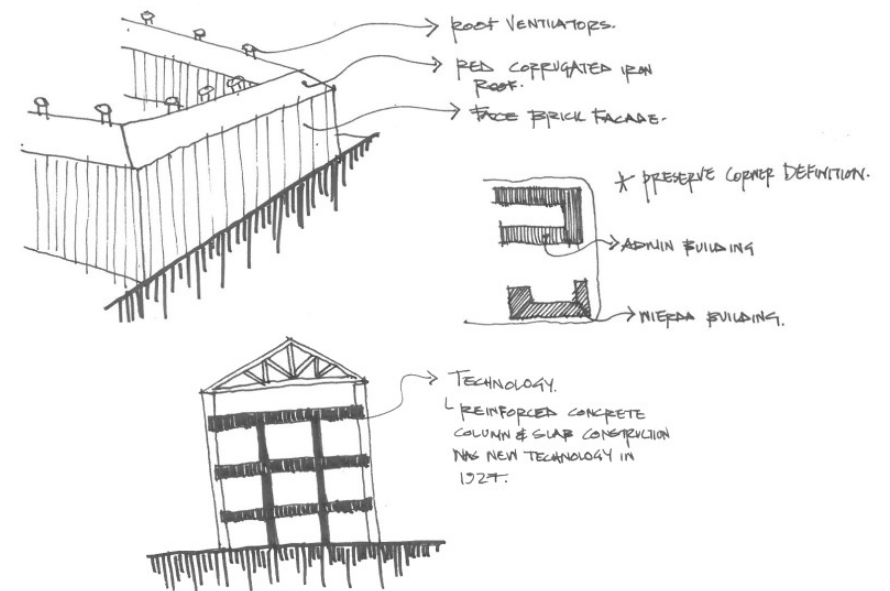 ROOF VENTILATORS.
RED CORRUGATED IRON
ROOF.
FACE BRICK FACADE.
* PRESERVE CORNER DEFINITION.
ADMIN BUILDING
WIERDA BUILDING.
TECHNOLOGY.
REINFORCED CONCRETE
COLUMN & SLAB CONSTRUCTION
WAS NEW TECHNOLOGY IN